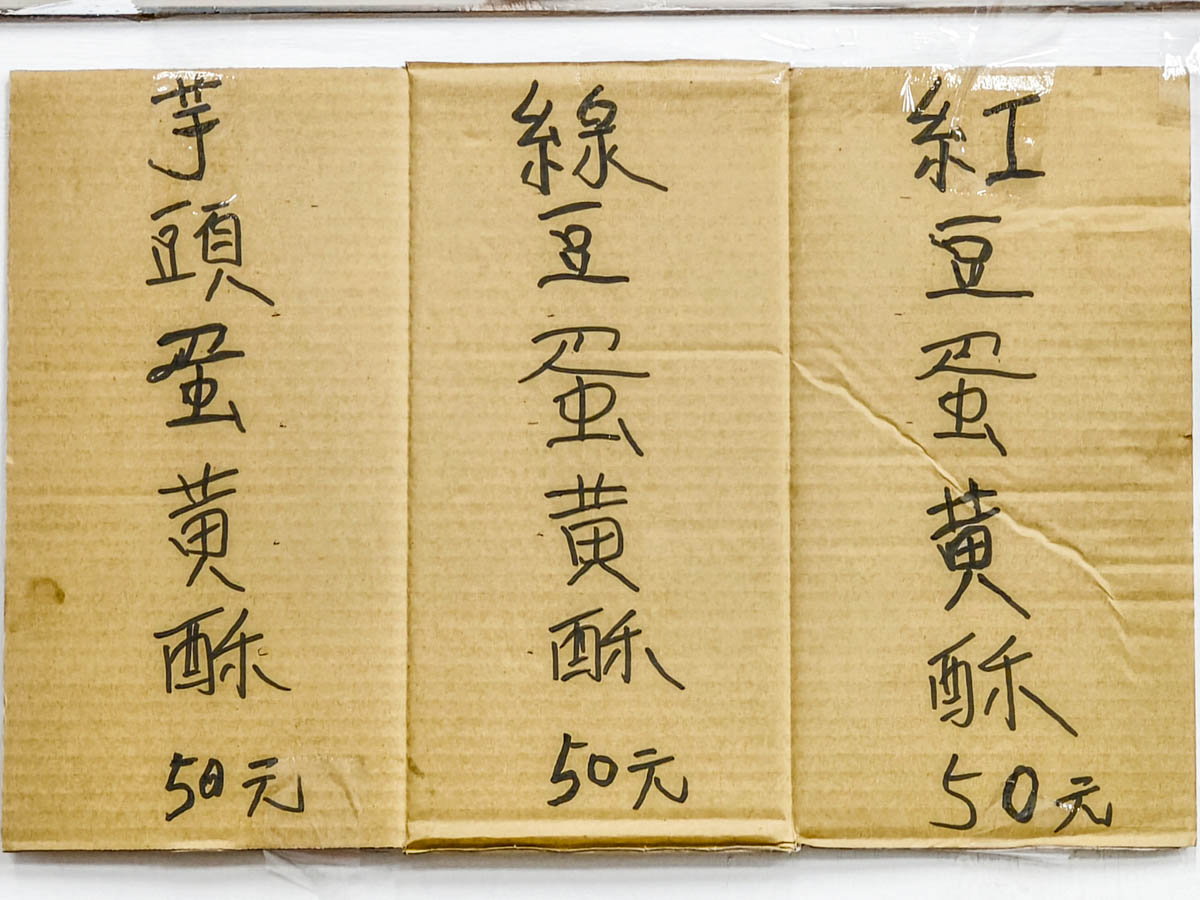 紅豆蛋黃酥
50元
線豆蛋黃酥
50元
芋頭蛋黃酥
50元